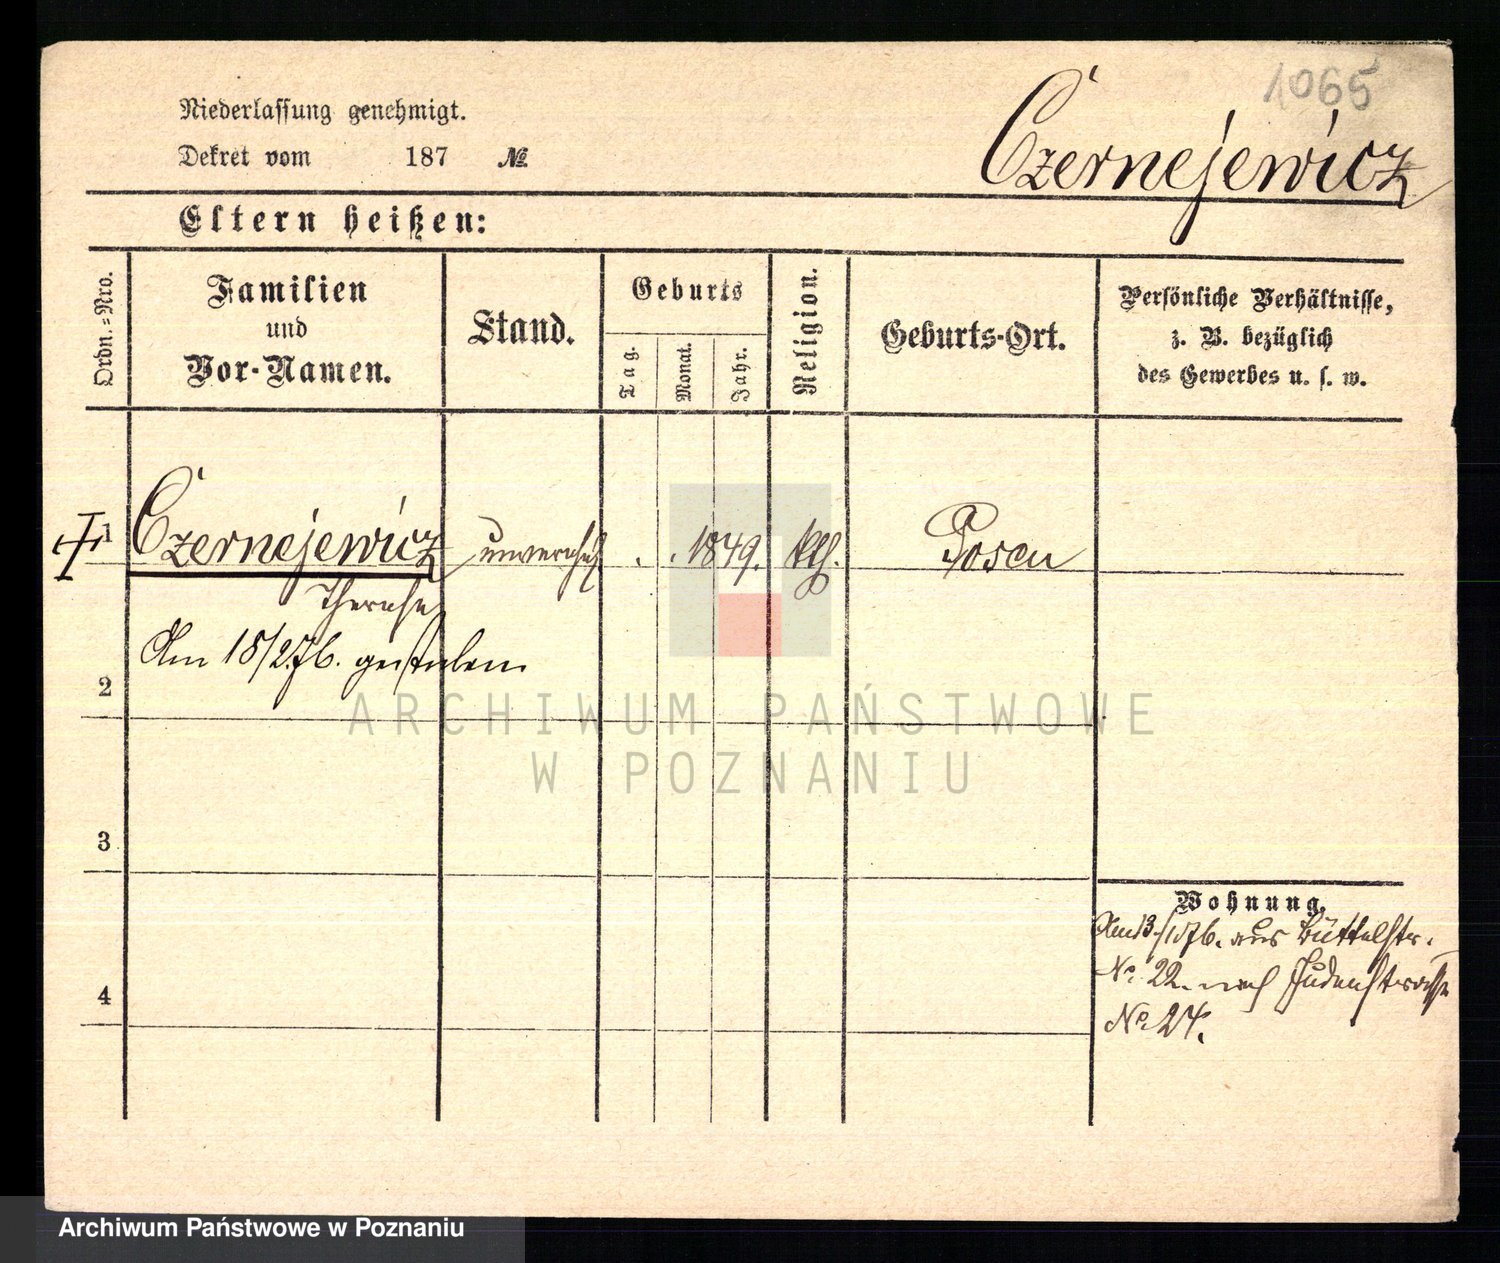 1065
Niederlassung genehmigt.
Dekret vom 187 №
Czernejewicz
Eltern heißen:
Ordn.=Nro.
Familien
und
Vor-Namen.
Stand.
Geburts
Tag.
Monat.
Jahr.
Religion.
Geburts-Ort.
Persönliche Verhältnisse,
z. B. bezüglich
des Gewerbes u. s. w.
1 Czernejewicz . . 1849. kth. Posen
Therese
Am 18/2.76. gestorben
2
ARCHIWUM PAŃSTWOWE
W POZNANIU
3
Wohnung.
Am 13./1.76. aus Büttelstr.
No. 22. nach Judenstrasse
No. 24.
4
Archiwum Państwowe w Poznaniu